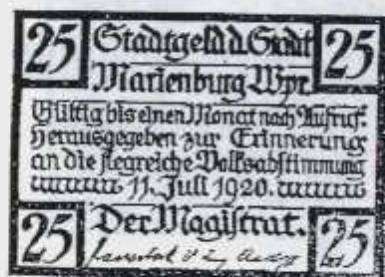 25 Stadtgeld d. Stadt 25
Marienburg Wpr.
Gültig bis einen Monat nach Aufruf.
Herausgegeben zur Erinnerung
an die siegreiche Volksabstimmung
11. Juli 1920.
25 Der Magistrat. 25